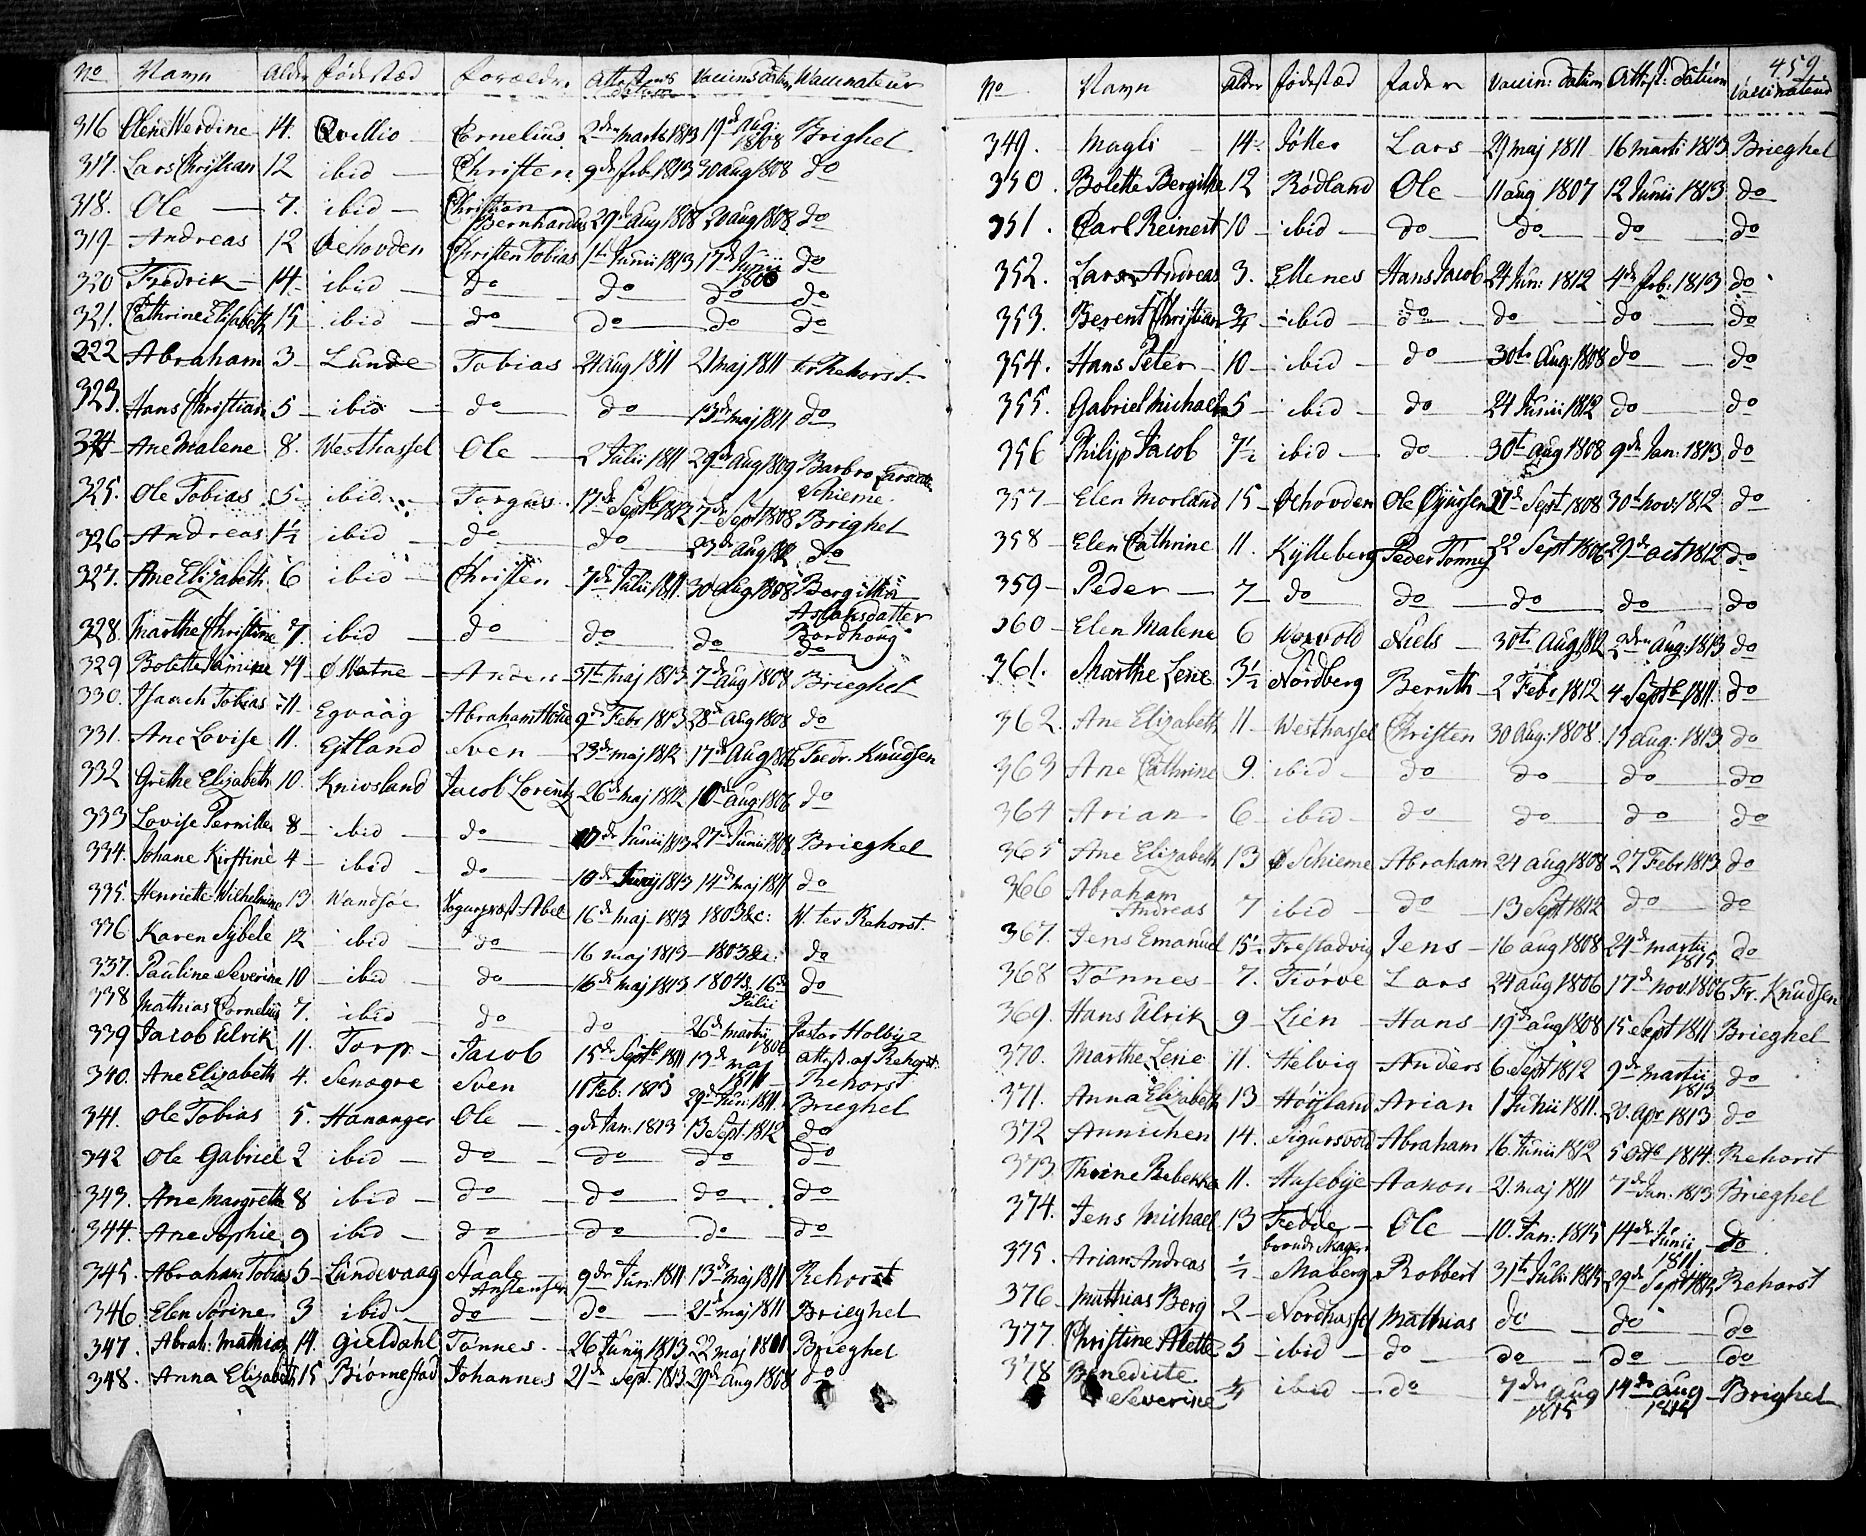 No Navn Alder fødestæd forældre Attestens datum Vaccins datum Vaccinateur
316 Olene Werdine 14. Qvillio Cornelius 2den martii 1813 19de Aug: 1808 Brighel
317. Lars Christian 12 ibid Christen 9de feb. 1813 30 aug 1808 do
318. Ole 7. ibid Christian Bernhardus 29de aug 1808 20 aug 1808 do
319 Andreas 12 Øehovden Christen Tobias 1ste Junii 1813 17de Junii 1806 do
320 Fredrik 14 ibid do do do do
321. Cathrine Elisabeth 15 ibid do do do do
322 Abraham 3 Lunde Tobias 21 aug 1811 21 maj 1811 Rehorst
323. Hans Christian 5 ibid do do 13de maj 1811 do
324 Ane Malene 8. Westhassel Ole 2 Julii 1811 29de Aug 1809 Barbro Larsdatter Schieme
325. Ole Tobias 5 ibid Torgus 17de Septbr 1812 7de Sept 1808 Brighel
326 Andreas 1½ ibid do do 23de Aug 1812 do
327. Ane Elizabeth 6 ibid Christen 7de Julii 1811 30 Aug 1808 Bergitha Aslaksdatter Nordhoug
328. Marthe Christine 7. ibid do do do do
329 Bolette Jamine 14 Ø Matne Anders 31te maj 1813 7de Aug 1808 Brieghel
330. Isaach Tobias 11 Egvaag Abraham 9de Febr 1813 28de Aug 1808 do
331. Ane Lovise 11. Ejtland Sven 23de maj 1812 17de Aug 1806 Fredr. Knudsen
332 Grethe Elizabeth 10. Knivsland Jacob Lorentz 26de maj 1812 10de aug 1806 do
333 Lovise Pernille 8 ibid do 10de Junii 1813 27de Junii 1808 Brieghel
334. Johane Kirstine 4 ibid do 10de Junij 1813 14de maj 1811 do
335. Henriette Wilhelmine 13 Vandsøe Sogneprest Abel 16de maj 1813 1803 &c: Rehorst.
336 Karen Sybele 12 ibid do 16 maj 1813 1803 &c: do
337. Pauline Severine 10 ibid do 16de maj 1813 1804 d. 16de Julii do
338 Mathias Cornelius 7. ibid do do 26de martij 1806 Pastor Holbye
339 Jacob Ulrik 11. Torp Jacob 15de Septbr 1811 13de maj 1811 attest af Rehorst
340. Ane Elizabeth 4. Senagre Sven 11 Feb: 1813 29de Jun: 1811 Rehorst
341. Ole Tobias 5. Hananger Ole 9de Jan: 1813 13 Sept. 1812 Brieghel do
342 Ole Gabriel 2 ibid do do do do
343. Ane Margrethe 8 ibid do do do do
344. Ane Sophie 9 ibid do do do do
345. Abraham Tobias 5 Lundevaag Aanensen 9de Jun: 1811 13de Maj 1811 Rehorst
346. Elen Sorine 3 ibid do do 21de maj 1811 Brieghel
347. Abrah: Mathias 14 Gieldahl Tønnes 26 Junij 1813 22 maj 1811 Brieghel
348. Anna Elizabeth 15 Biørnestad Johannes 21de Sept. 1813 29de Aug 1808 do
459
No Navn Alder fødestæd Fader Vaccin: datum Attest: datum Vaccinateur
349. Magli 14 Jøller Lars 29 maj 1811 16 marti 1813 Brieghel
350. Bolette Bergithe 12 Rødland Ole 11 aug 1807 12 Junii 1813 do
351. Carl Reinert 10 ibid do do do do
352. Lars Andreas 3. Ellenes Hans Jacob 24 Jun: 1812 4de feb: 1813 do
353. Berent Christian ¾ ibid do do do do
354. Hans Peter 10 ibid do 30te Aug: 1808 do do
355. Gabriel Michael 5 ibid do 24 Junii 1812 do do
356 Philip Jacob 7½ ibid do 30te aug 1808 9de Jan: 1813 do
357 Elen Morland 15 Øehovden Ole 27de Sept 1808 30te nov: 1812 do
358 Elen Cathrine 11. Kylleberg Peder Tønnes 22 Sept 1806 29de Oct 1812 do
359 Peder 7 do do do do do
360 Elen Malene 6 Niels 30te Aug 1812 2den Aug: 1813 do
361. Marthe Lene 3½ Nordberg Bernth 2 Febr 1812 4 Septbr 1811. do
362. Ane Elizabeth 11 Westhassel Christen 30 Aug: 1808. 19 Aug: 1813 do
363 Ane Cathrine 9. ibid do do do do
364 Arian 6 ibid do do do do
365 Ane Elizabeth 13 Ø Schieme Abraham 24 aug 1808 27 Febr 1813 do
366 Abraham Andreas 7 ibid do 13 Sept 1812 do do
367. Jens Emanuel 15½ Frestadvig Jens 16 aug 1808 24de martii 1815 do
368 Tønnes 7. Tiørve Lars 24 aug 1806 17de nov. 1806 Fr. Knudsen
369. Hans Ulrik 9 Lien Hans 19de aug 1808 15 Sept 1811 Brieghel
370. Marthe Lene 11. Helvig Anders 6 Sept 1812 9de martii 1813 do
371. Anna Elizabeth 13 Høyland Arian 1 Julii 1811. 20 apr 1813 do
372 Annichen 14. Sigersvold Abraham 16. Junii 1812 5 Octbr 1814. Rehorst
373 Thrine Rebekka 11. Husebye Aanon 21. maj 1811 7de Jan: 1813 Brieghel
374. Jens Michael 13 Fedde Ole 10. Jan: 1815 14de Junii 1811 do
375. Arian Andreas ½ Maberg Robbert 31te Julii 1815 29de Sept 1815 Rehorst
376 Mathias Berg 2 Nordhassel Mathias do do do
377. Christine Alette 5 ibid do do do do
378 Benedicte Severine ¼ ibid do 7de aug 1815 14de aug 1815 Brighel